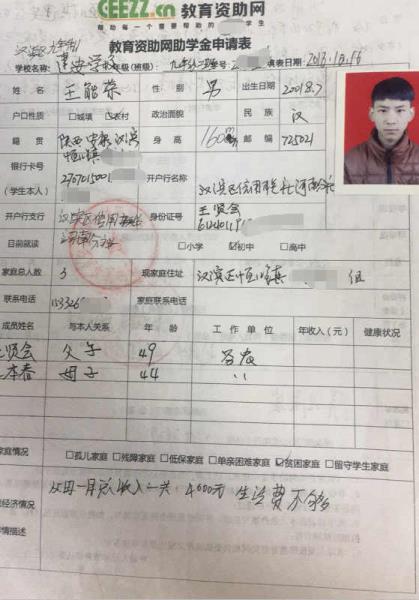 CEEZZ.cn 教育资助网
帮助每一个需要帮助的 学生
教育资助网助学金申请表
学校名称: 建安学校 年级(班级): 填表日期:
姓名 王能荣 性别 男 出生日期
户口性质 □城镇 农村 政治面貌 民族 汉
籍贯 陕西 汉滨 恒口镇 身高 160 邮编 725021
银行卡号 开户行名称 汉滨区信用联社河南分社
(学生本人) 2707015001 王贤会
开户支行 汉滨区信用 身份证号
目前就读 □小学 ☑初中 □高中
家庭总人数 3 现家庭住址 汉滨区恒口镇 组
联系电话 153326 家庭联系电话
成员姓名 与本人关系 年龄 工作单位 年收入(元) 健康状况
贤会 父子 49 务农
本春 母子 44 ''
家庭情况 □孤儿家庭 □残障家庭 □低保家庭 □单亲困难家庭 ☑贫困家庭 □留守学生家庭
经济情况 父母一月总收入一共 4000元 生活费不够多
情描述